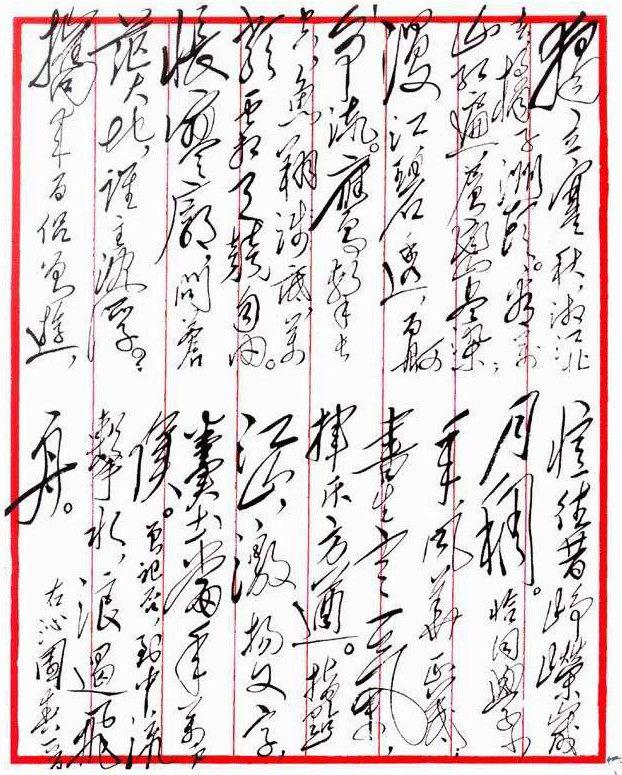 獨立寒秋,湘江北
去,橘子洲頭。看万
山紅遍,層林尽染;
漫江碧透,百舸
争流。鷹擊長
空,魚翔浅底,万
類霜天競自由。
悵寥廓,問蒼
茫大地,誰主沉浮?
攜來百侣曾遊,
憶往昔崢嶸歲
月稠。恰同學少
年,風華正茂;
書生意氣,
揮斥方遒。指點
江山,激揚文字,
糞土當年万户
侯。曾記否,到中流
擊水,浪遏飛
舟。
右沁園春